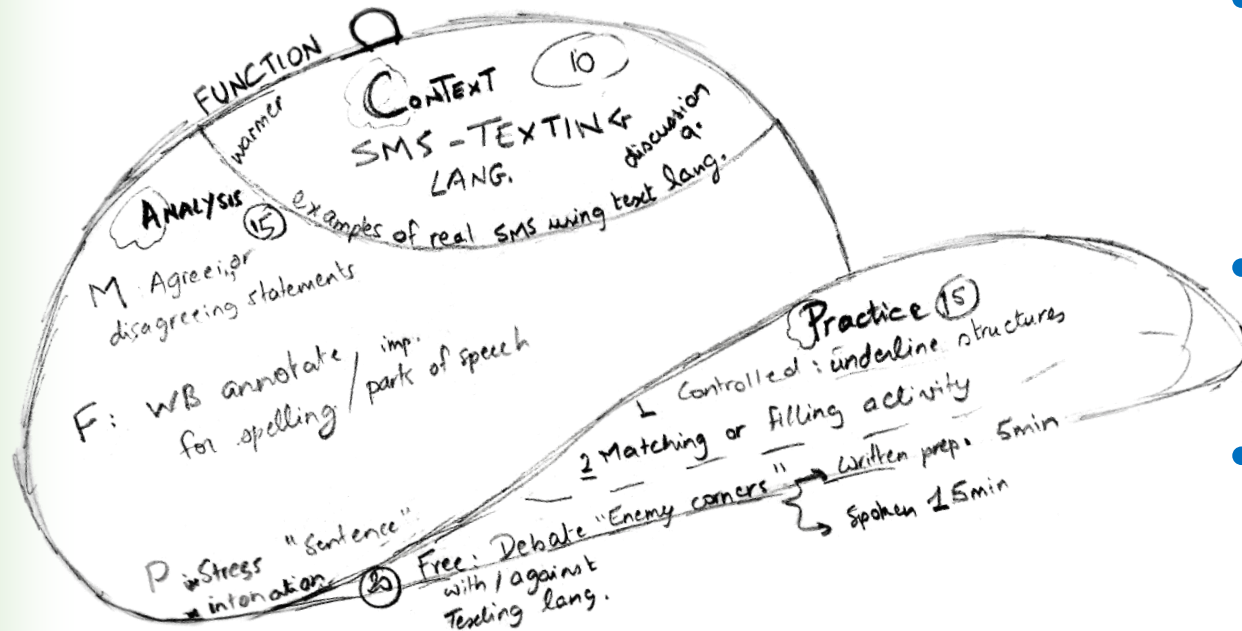 FUNCTION
CONTEXT 10
SMS - TEXTING
LANG.
warmer
discussion
q.
examples of real SMS using text lang.
ANALYSIS 15
M: Agreeing or
disagreeing statements
F: WB annotate / imp.
for spelling / part of speech
P: Stress "Sentence"
intonation
Practice 15
1 Controlled: underline structures
2 Matching or filling activity
20 Free: Debate "Enemy corners"
with / against
Texting lang.
written prep. 5min
Spoken 15min